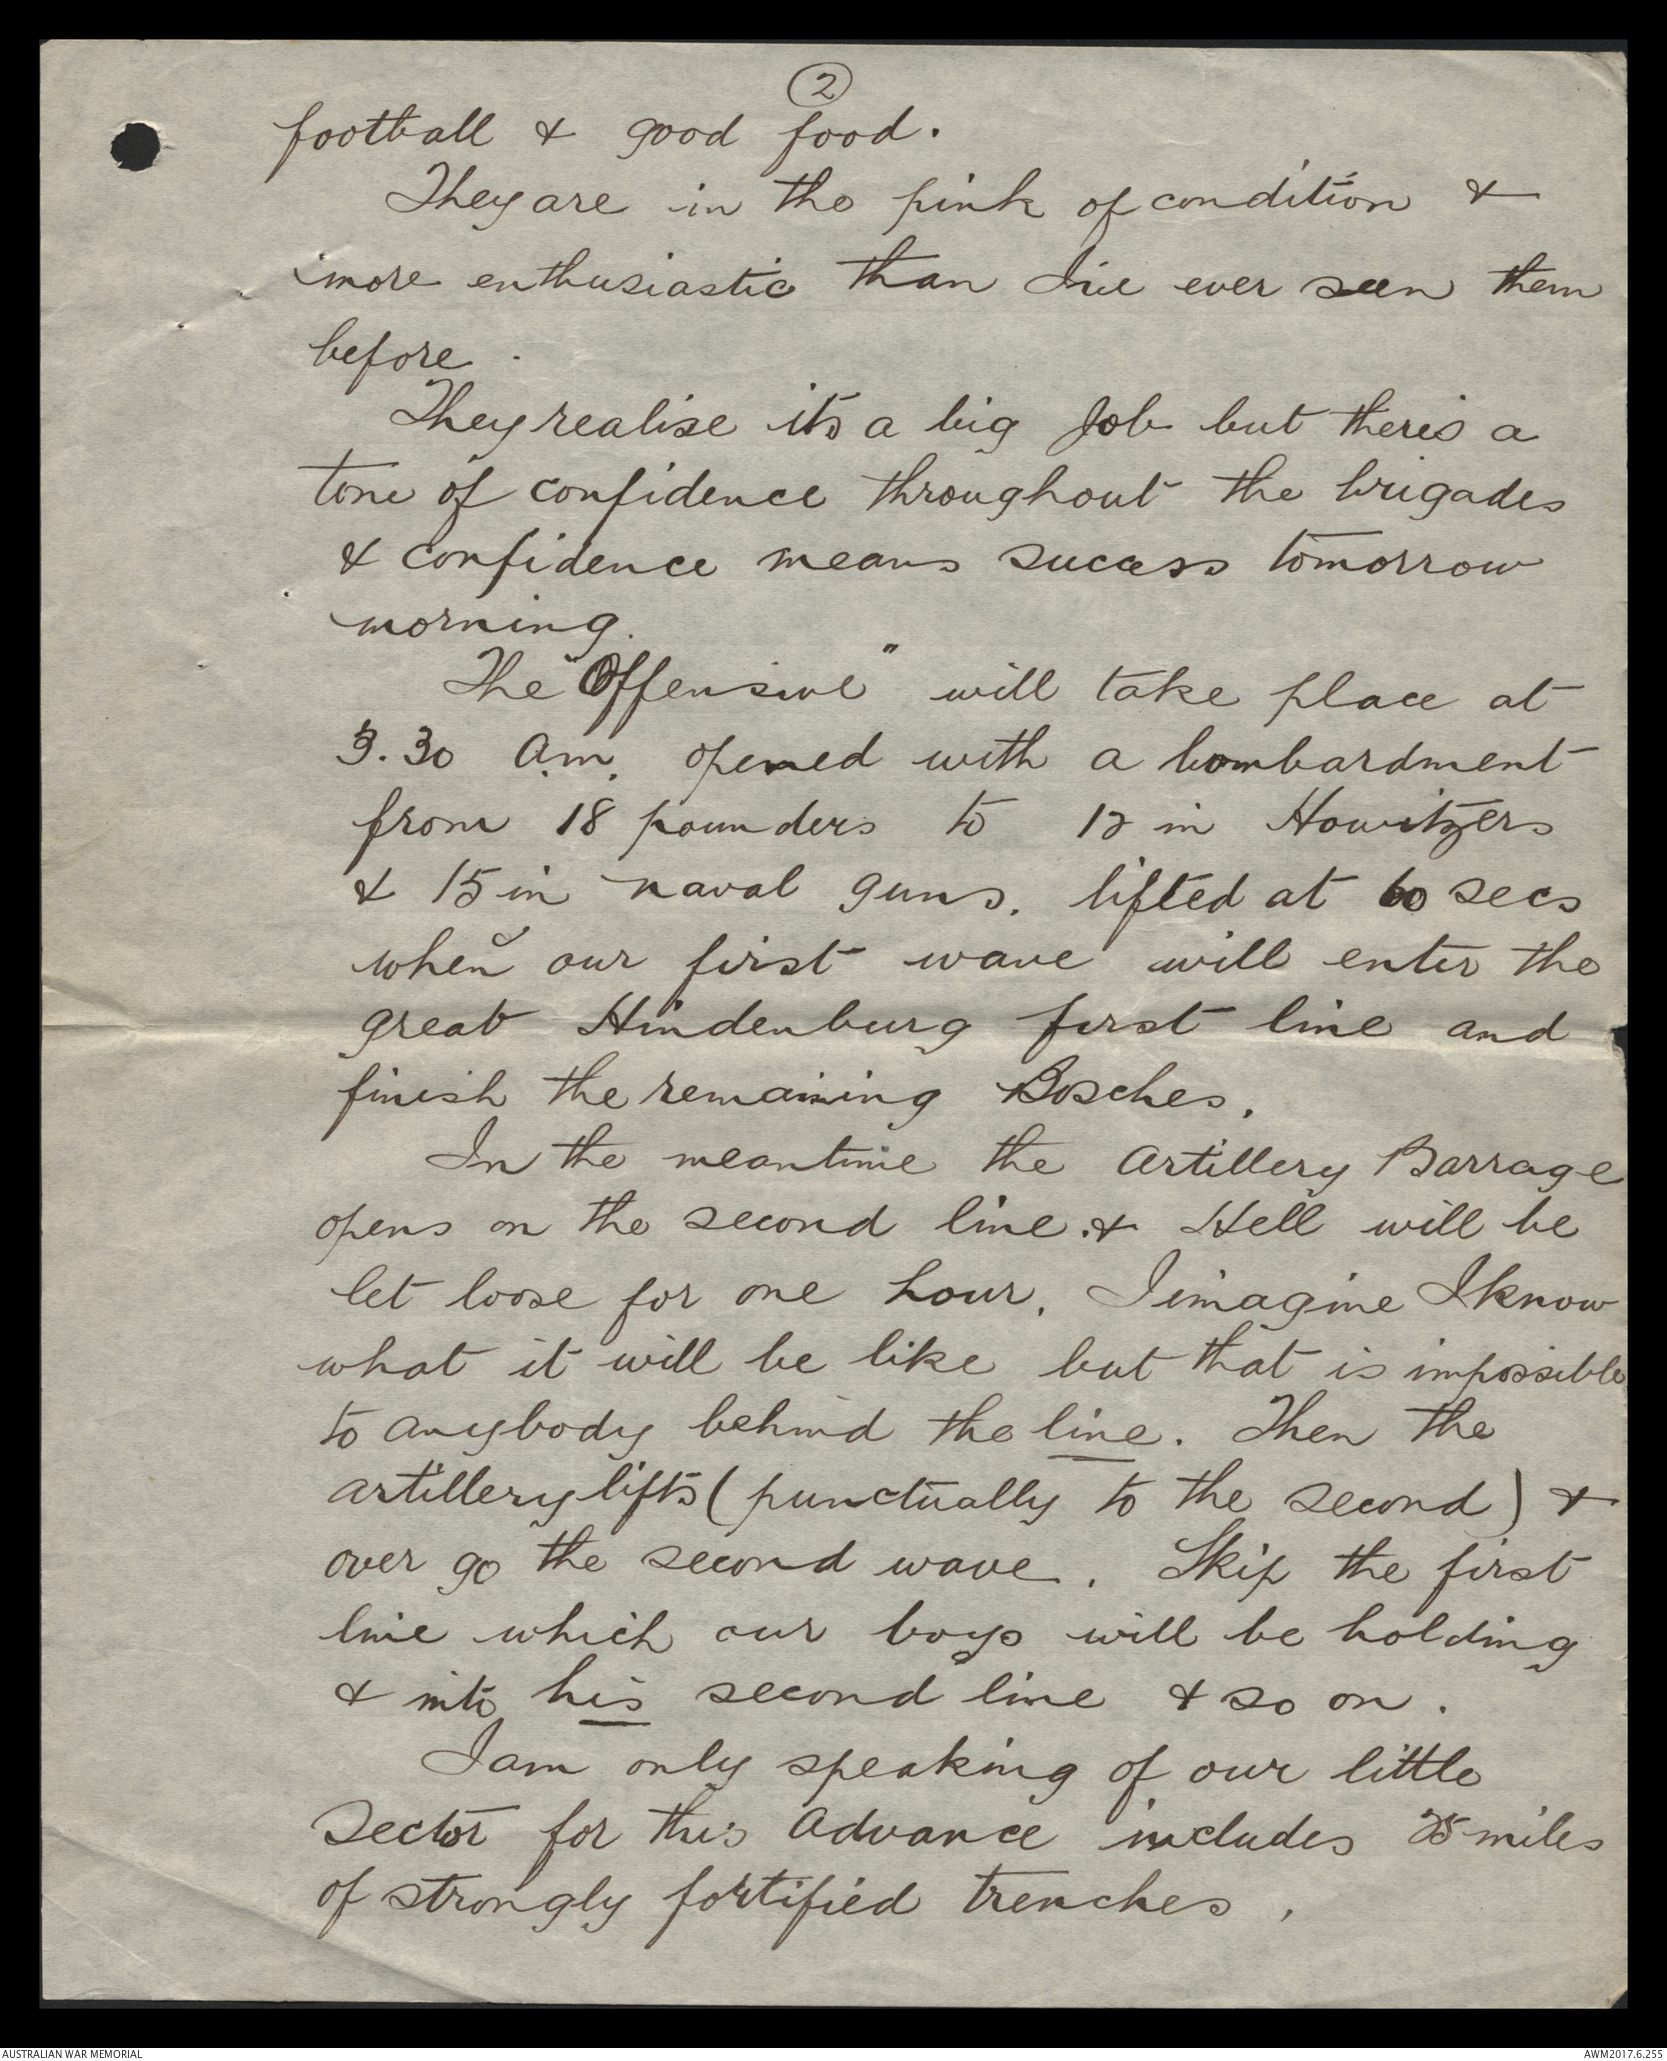 2
football & good food.
They are in the pink of condition &
more enthusiastic than I've ever seen them
before.
They realise its a big Job but there's a
tone of confidence throughout the brigades
& confidence means success tomorrow
morning.
The "Offensive" will take place at
3.30 a.m. opened with a bombardment
from 18 pounders to 12 in Howitzers
& 15 in naval guns. lifted at 60 secs
when our first wave will enter the
great Hindenburg first line and
finish the remaining Bosches.
In the meantime the Artillery Barrage
opens on the second line. & Hell will be
let loose for one hour. I imagine I know
what it will be like but that is impossible
to anybody behind the line. Then the
artillery lifts (punctually to the second) &
over go the second wave. Skip the first
line which our boys will be holding
& into his second line & so on.
I am only speaking of our little
Sector for this Advance includes 25 miles
of strongly fortified trenches.
AUSTRALIAN WAR MEMORIAL
AWM2017.6.255